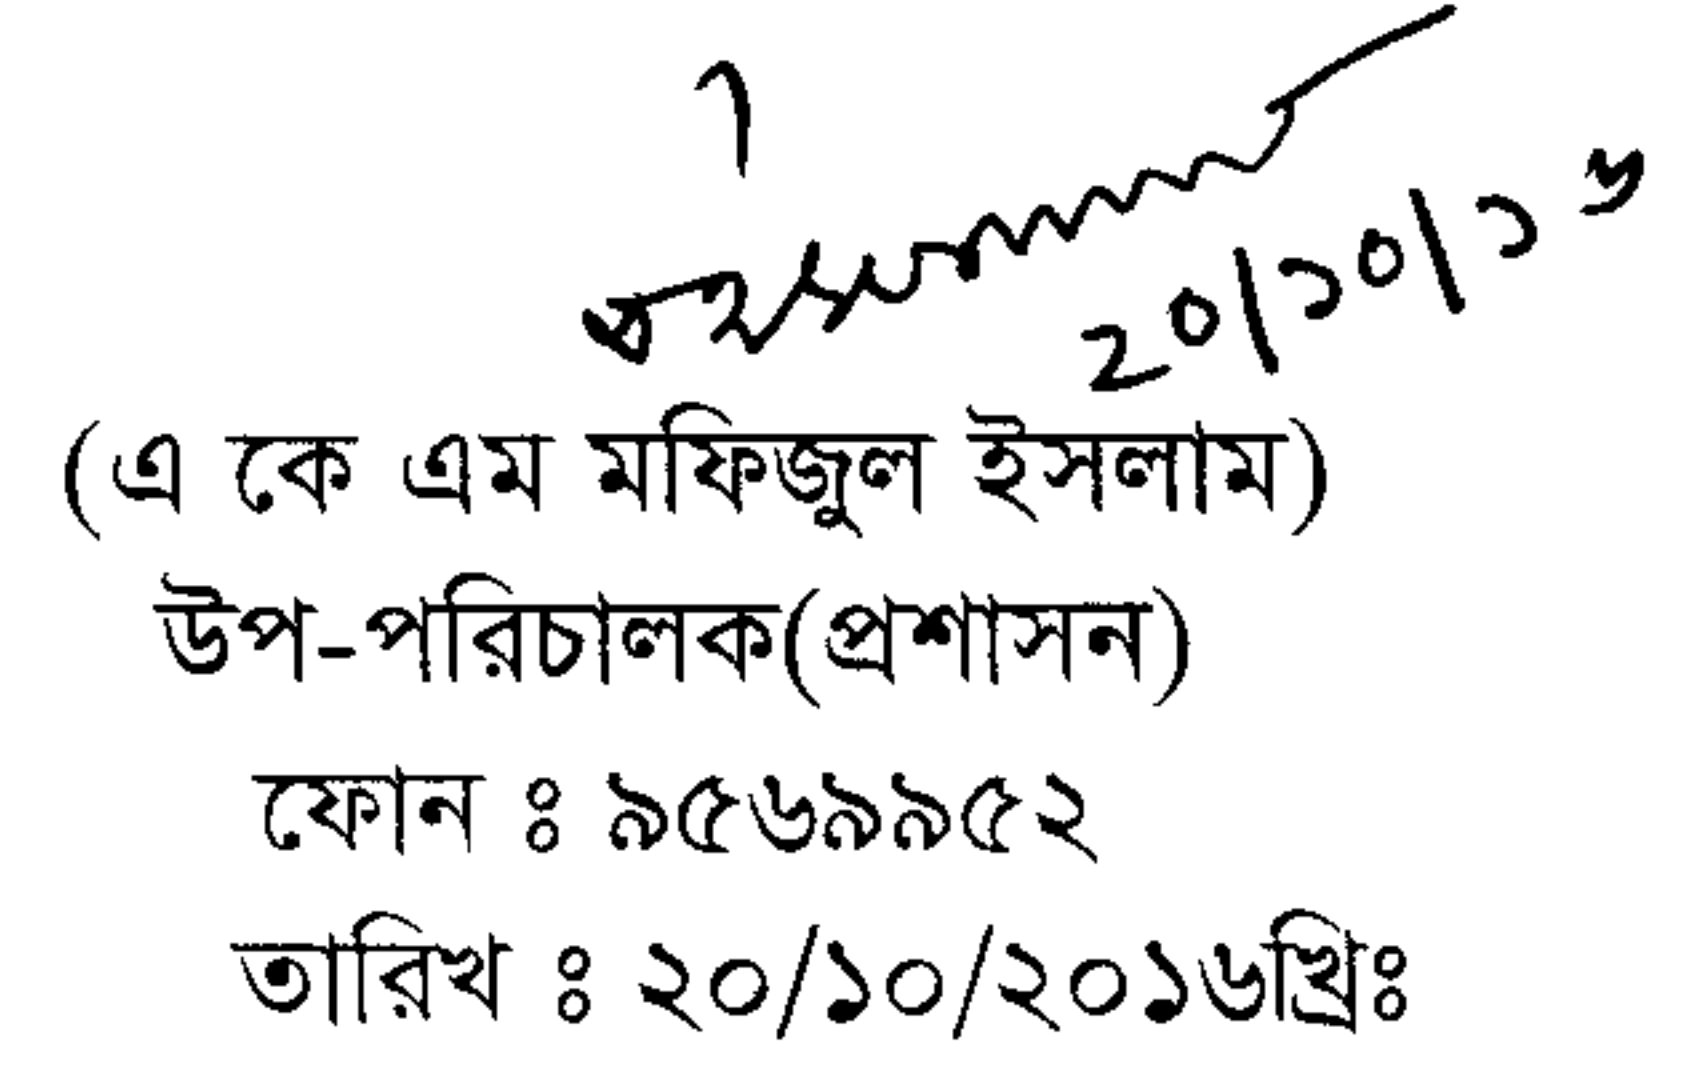 ২০/১০/১৬
(এ কে এম মফিজুল ইসলাম)
উপ-পরিচালক(প্রশাসন)
ফোন ঃ ৯৫৬৯৯৫২
তারিখ ঃ ২০/১০/২০১৬খ্রিঃ